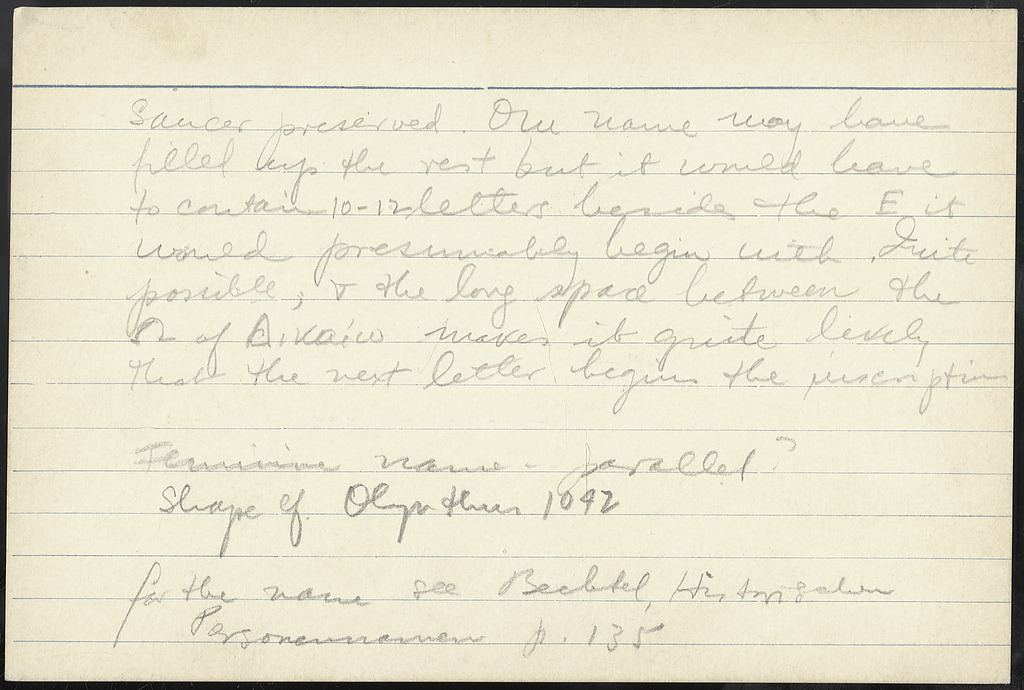 Saucer preserved. One name may have
filled up the rest but it would have
to contain 10-12 letters beside the E it
would presumably begin with. Quite
possible, & the long space between the
Ω of Δικαίω makes it quite likely
that the next letter begins the inscription
Feminine name - parallel?
Shape cf. Olynthus 1042
for the name see Bechtel, Historischen
Personennamen p. 135